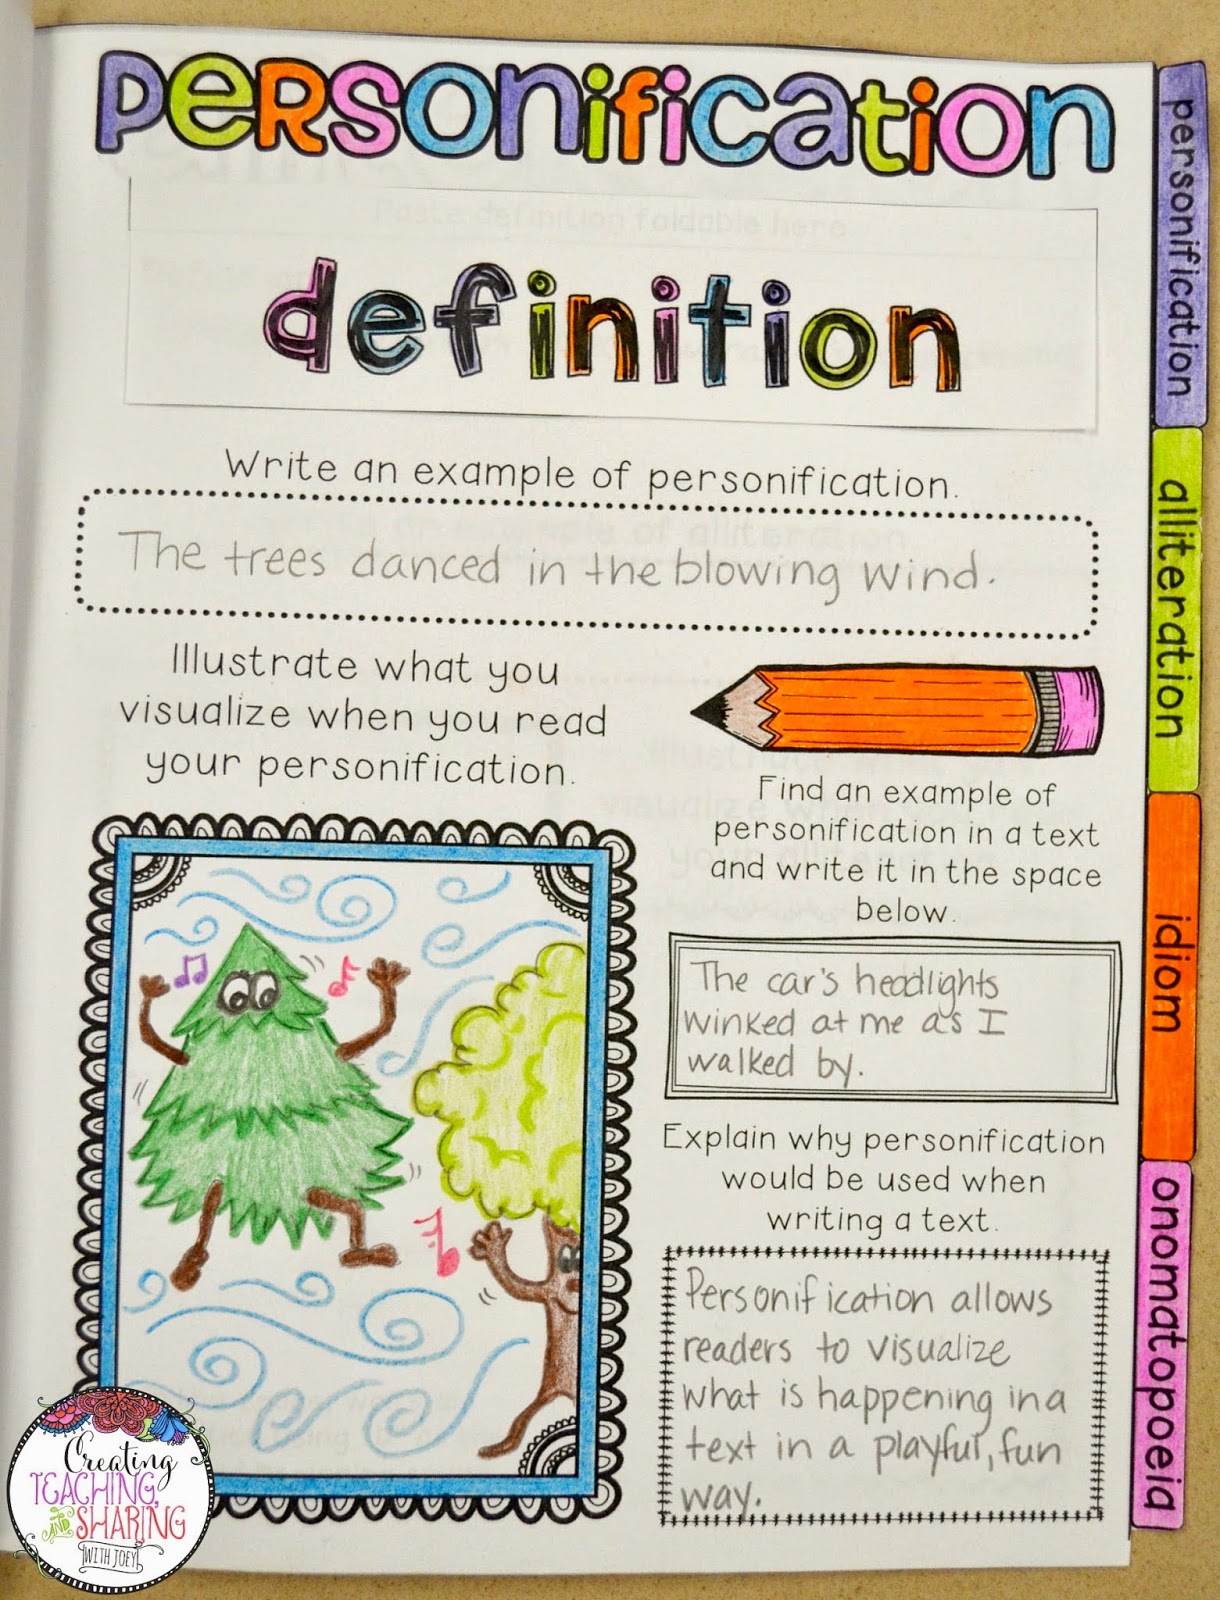 personification
definition
Write an example of personification.
The trees danced in the blowing wind.
Illustrate what you
visualize when you read
your personification.
Find an example of
personification in a text
and write it in the space
below.
The car's headlights
winked at me as I
walked by.
Explain why personification
would be used when
writing a text.
Personification allows
readers to visualize
what is happening in a
text in a playful, fun
way.
personification
alliteration
idiom
onomatopoeia
Creating
TEACHING,
AND SHARING
WITH JOEY!